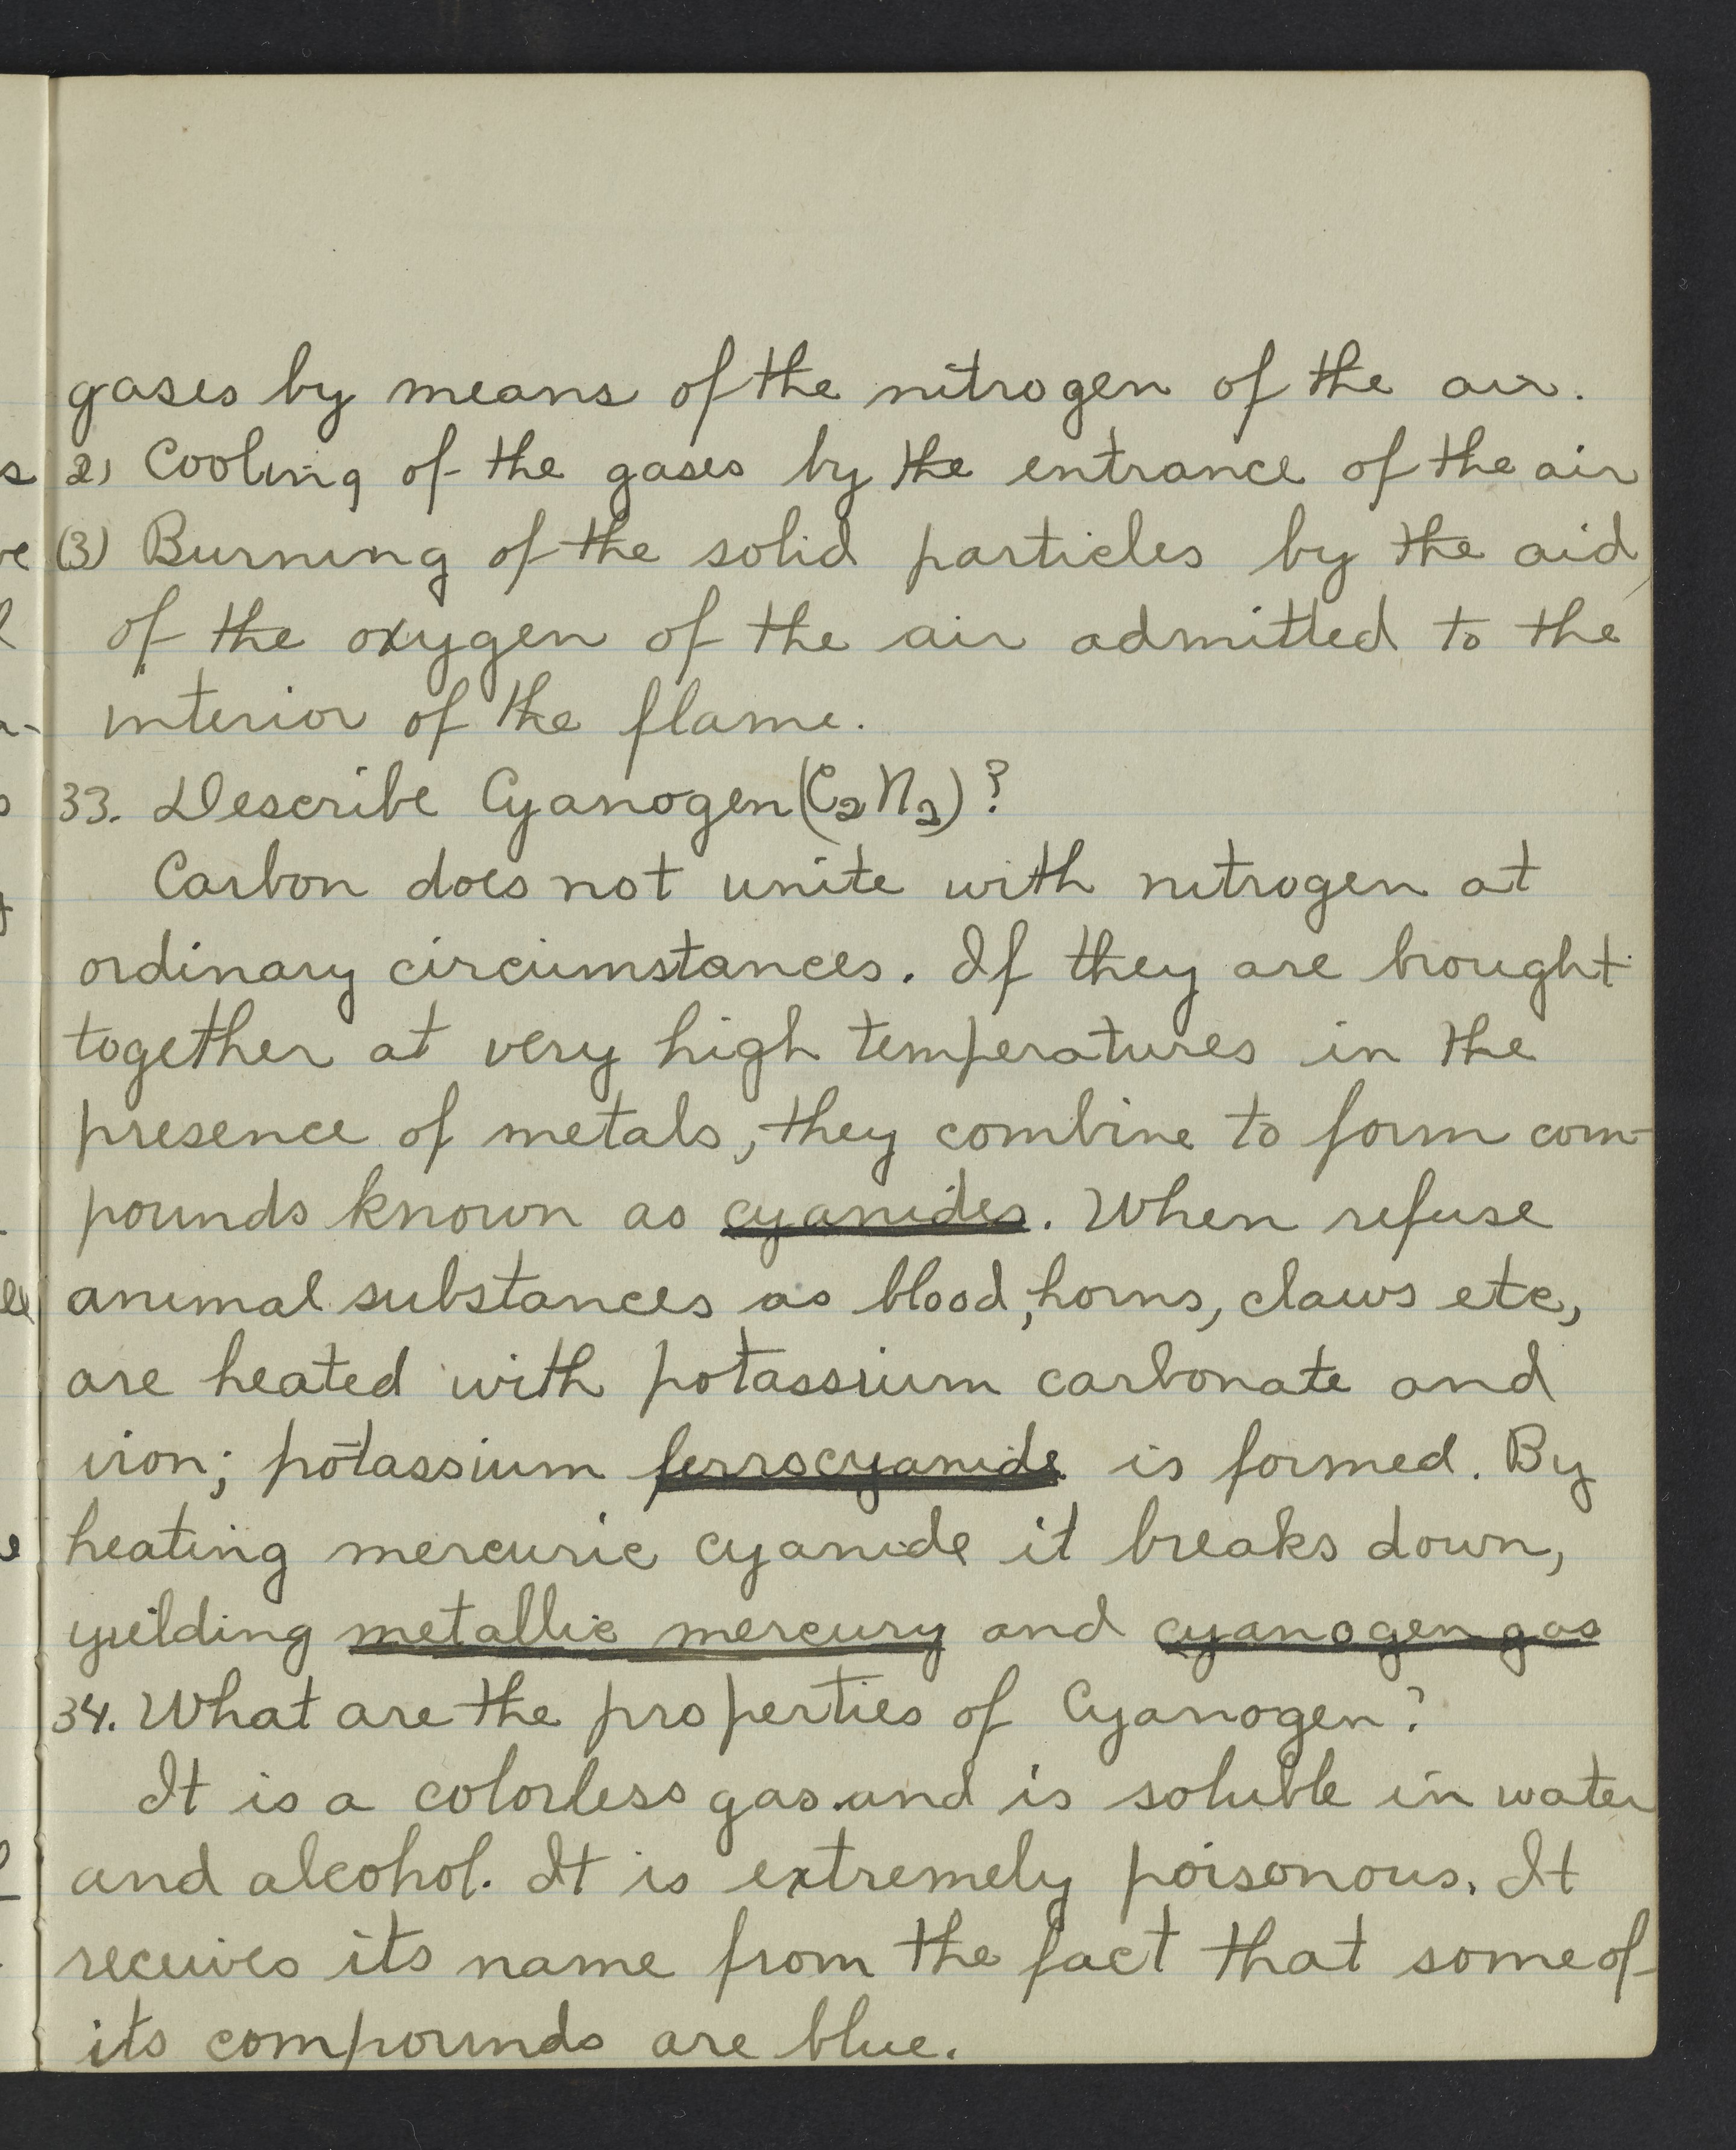 gases by means of the nitrogen of the air.
2) Cooling of the gases by the entrance of the air
(3) Burning of the solid particles by the aid
of the oxygen of the air admitted to the
interior of the flame.
33. Describe Cyanogen (C₂N₂)?
Carbon does not unite with nitrogen at
ordinary circumstances. If they are brought
together at very high temperatures in the
presence of metals, they combine to form com-
pounds known as cyanides. When refuse
animal substances as blood, horns, claws etc,
are heated with potassium carbonate and
iron; potassium ferrocyanide is formed. By
heating mercuric cyanide it breaks down,
yeilding metallic mercury and cyanogen gas
34. What are the properties of Cyanogen?
It is a colorless gas and is soluble in water
and alcohol. It is extremely poisonous. It
receives its name from the fact that some of
its compounds are blue.